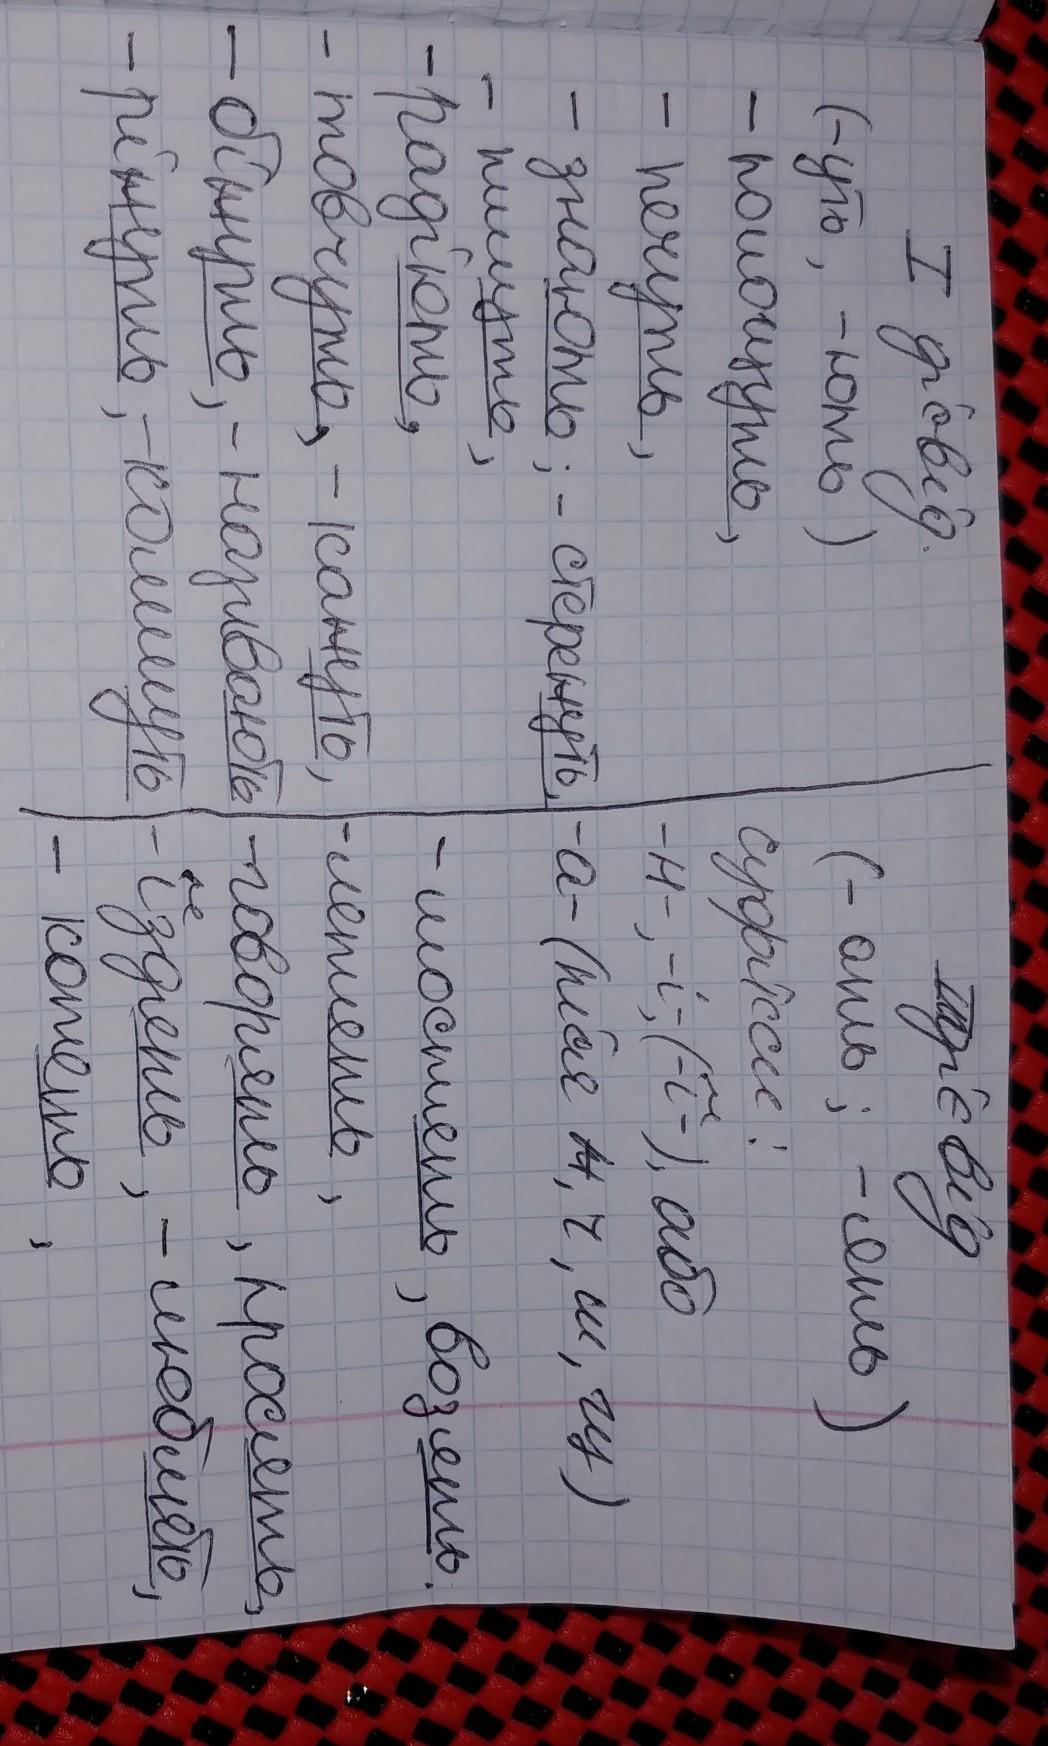 I дієвід.
(-уть, -ють)
- полощуть,
- печуть,
- знають; - стережуть,
- пишуть,
- радіють,
- товчуть, - кажуть,
- біжуть, - називають
- ріжуть, - колишуть
дієвід
(- ать; - ять)
суфікси:
-и-, -і-, (-ї-), або
-а- (після ж, ч, ш, щ)
- мостять, возять.
- летять,
- говорять, просять,
- їздять, - люблять,
- котять,